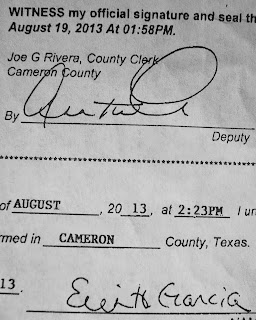 WITNESS my official signature and seal th
August 19, 2013 At 01:58PM.
Joe G Rivera, County Clerk
Cameron County
By
Deputy
of AUGUST, 20 13, at 2:23PM I un
rmed in CAMERON County, Texas.
13. Garcia